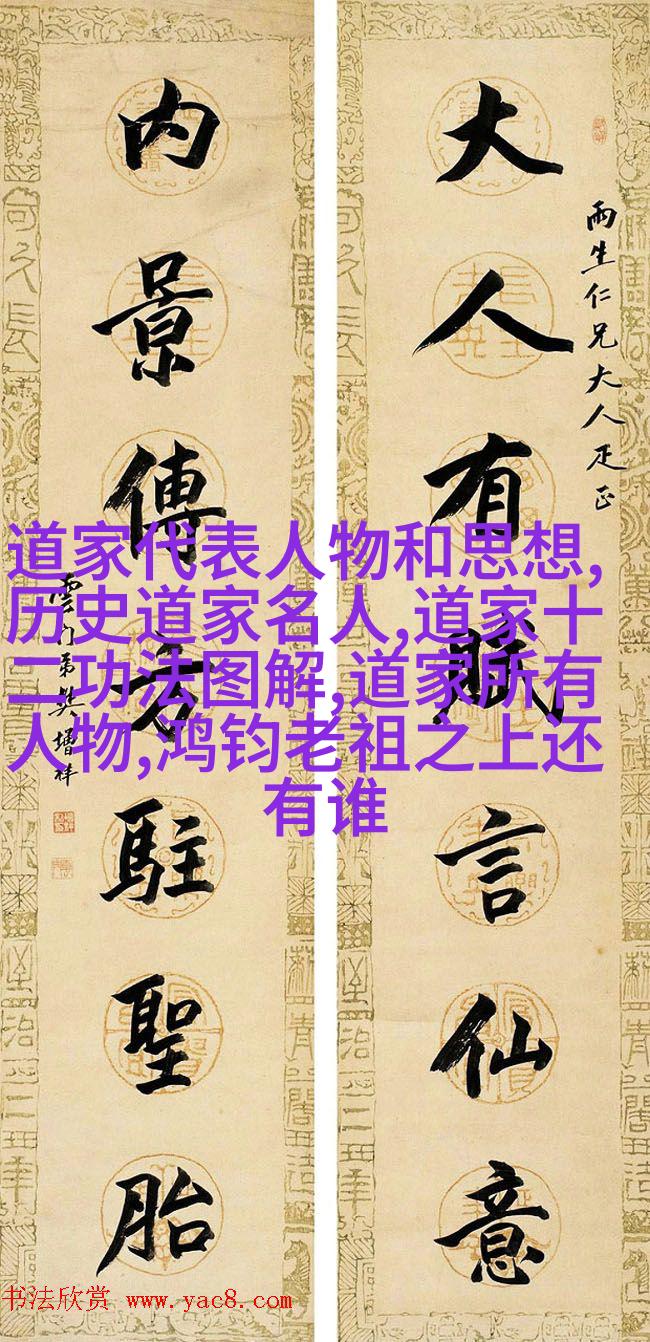 大人有賦言仙意
雨生仁兄大人疋正
内景傳駐聖胎
雲門弟樊增祥
道家代表人物和思想,
历史道家名人,道家十
二功法图解,道家所有
人物,鸿钧老祖之上还
有谁
书法欣赏 www.yac8.com